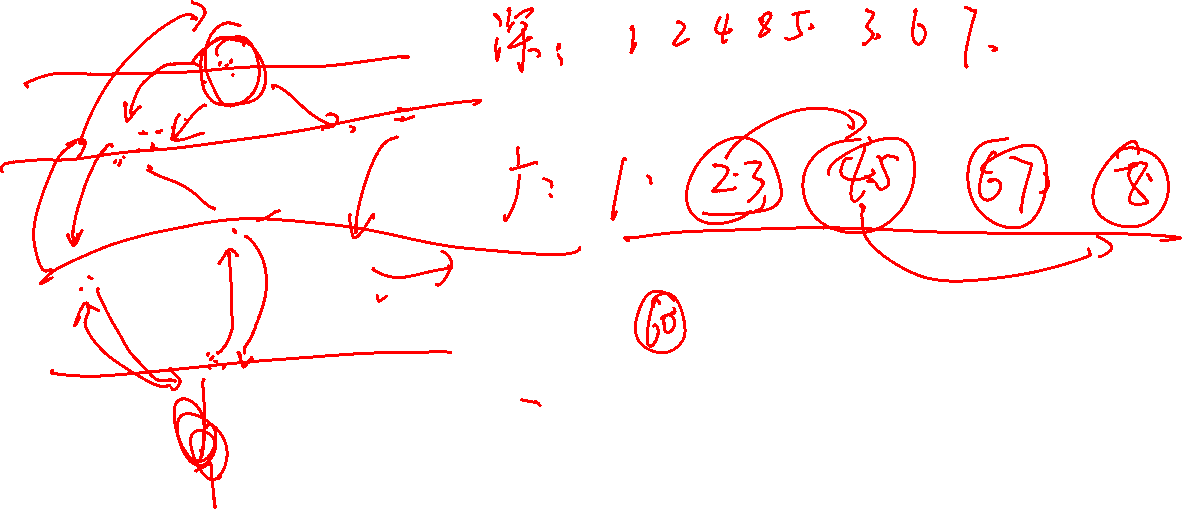 深: 1 2 4 8 5. 3. 6 7.
广: 1. 2.3 4.5 67 8.